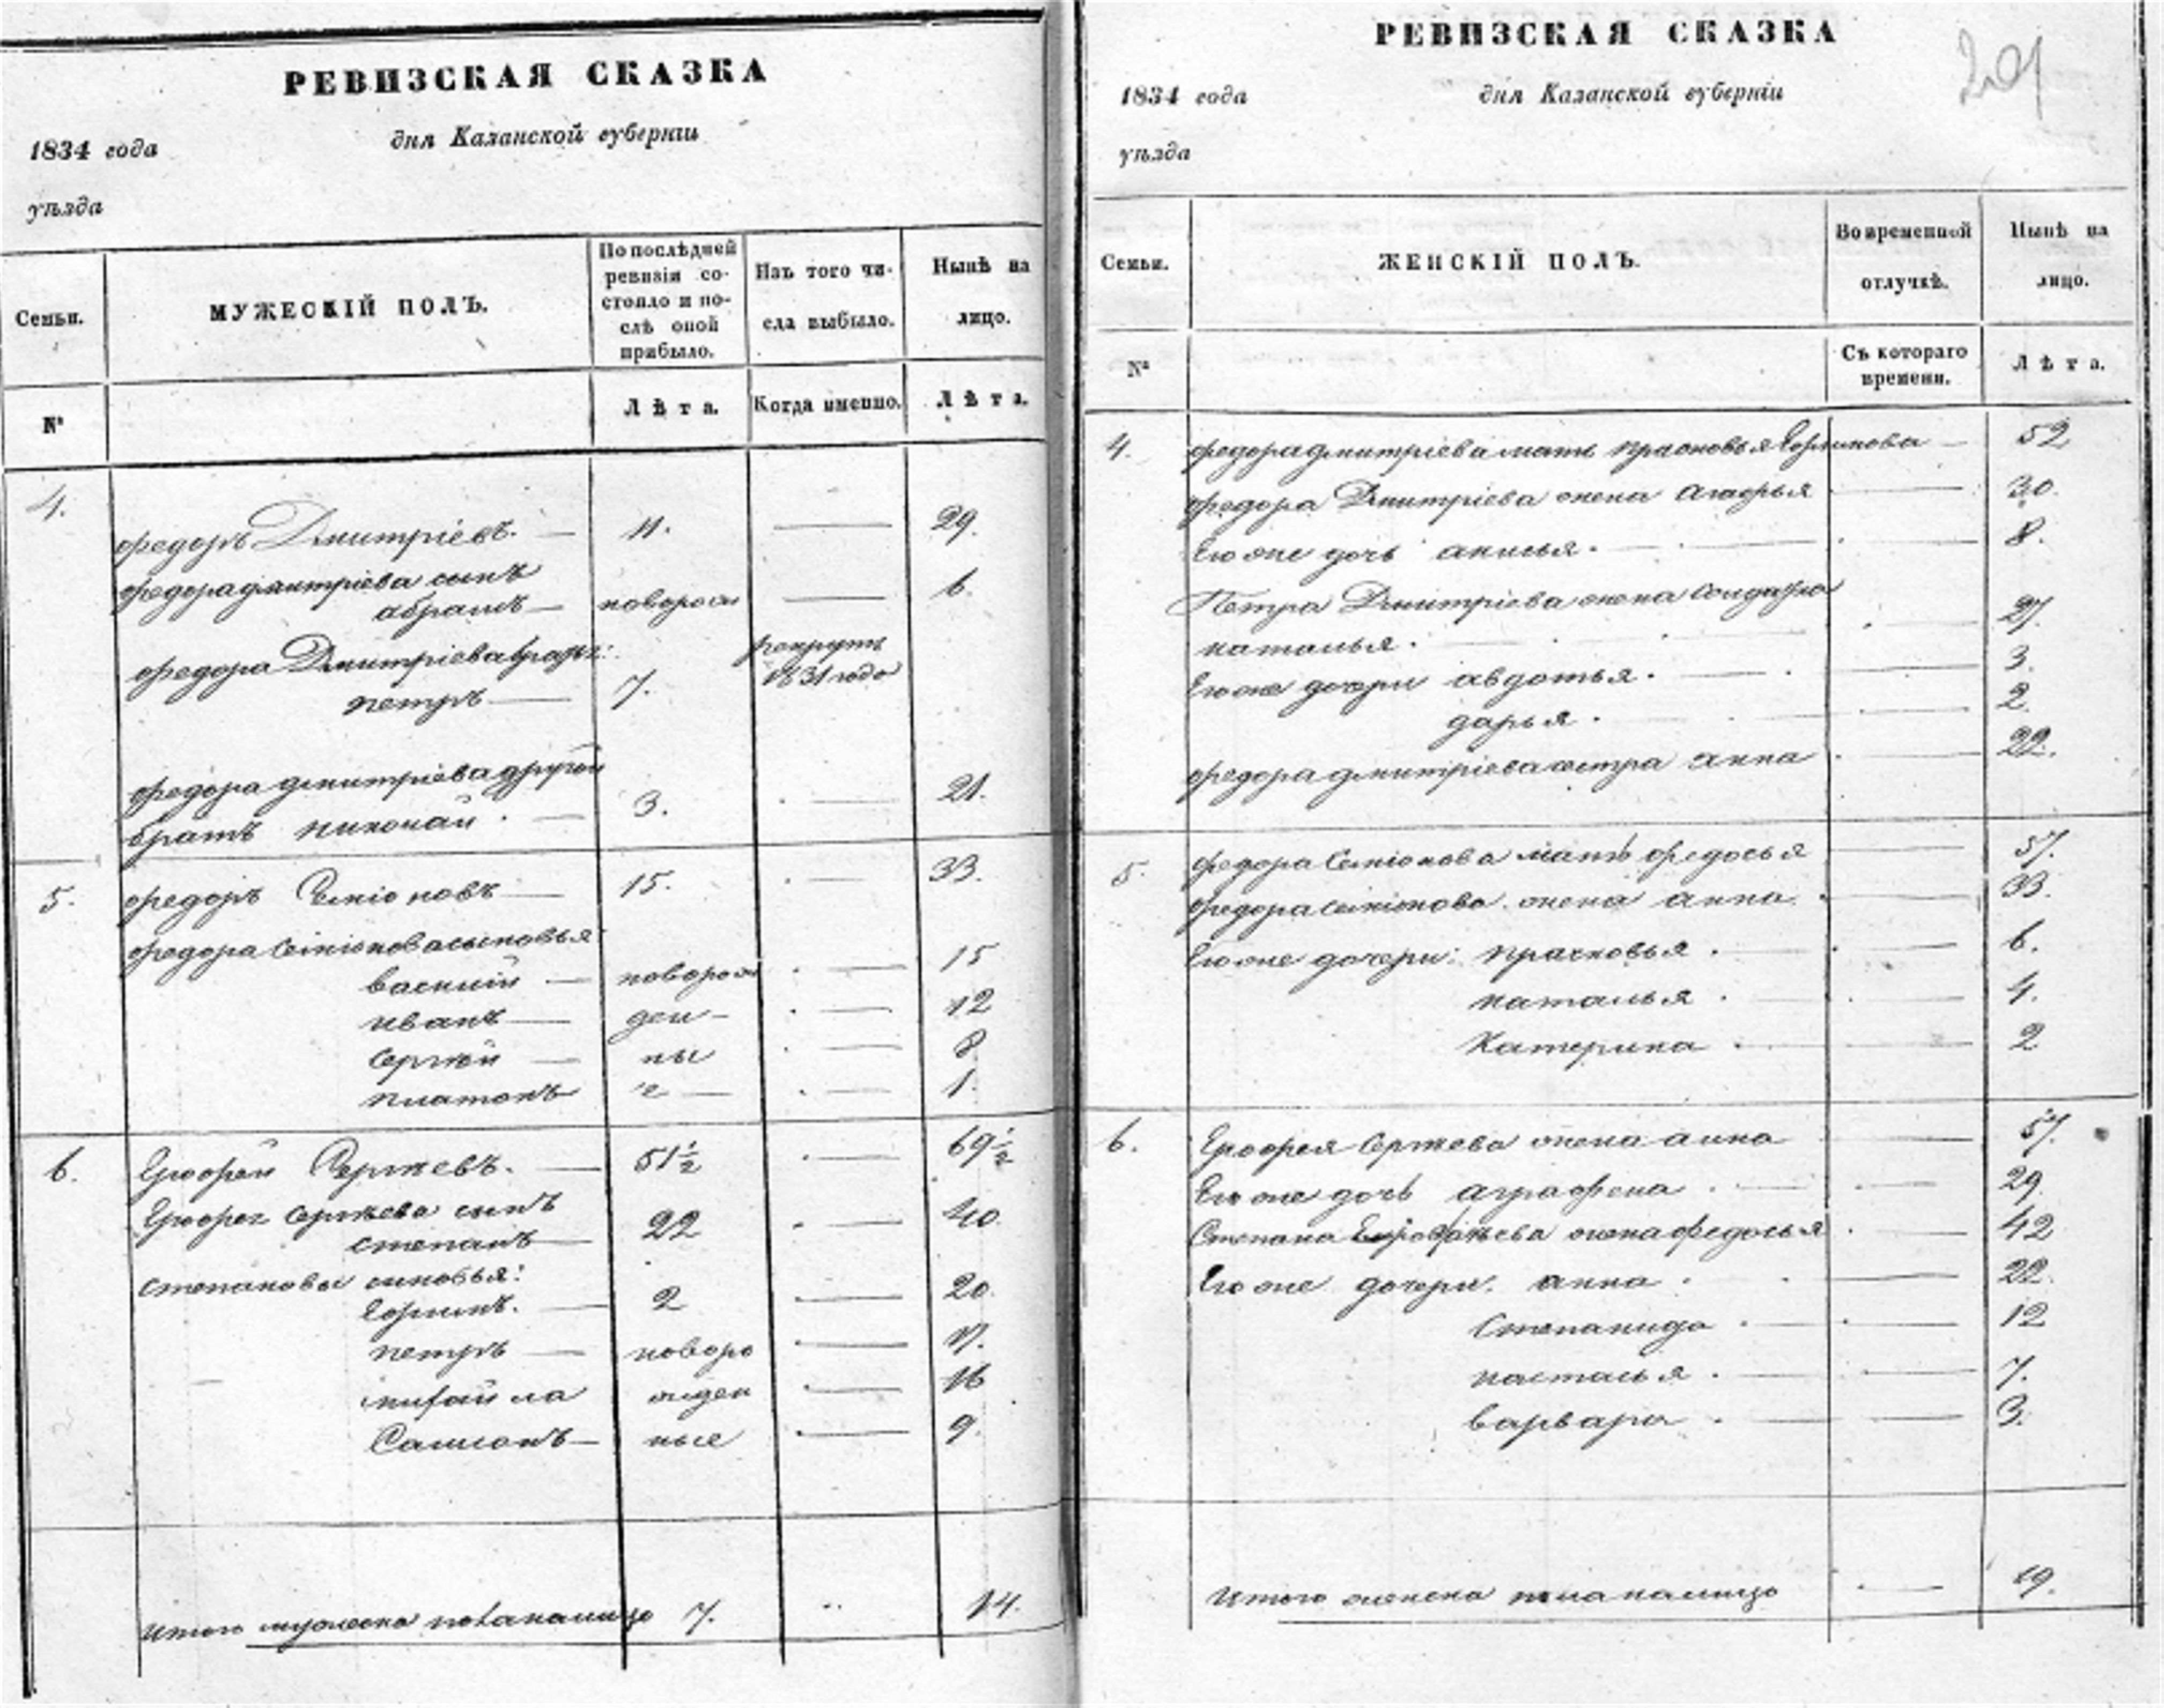 РЕВИЗСКАЯ СКАЗКА
1834 года
дня Казанской губернiи
уѣзда
Семьи.
МУЖЕСКIЙ ПОЛЪ.
По послѣдней
ревизiи со-
стояло и по-
слѣ оной
прибыло.
Изъ того чи-
сла выбыло.
Нынѣ на
лицо.
№
Лѣта.
Когда именно.
Лѣта.
4.
федоръ Дмитрiевъ. — 11. — 29.
федора дмитрiева сынъ
абрамъ — новорож — 6.
федора Дмитрiева братъ:
рекрутъ
петръ — 7. 1831 года
федора дмитрiева другой
братъ николай. — 3. — 21.
5. федоръ Семiоновъ — 15. — 33.
федора Семiонова сыновья
василiй — новорож — 15
иванъ — ден — 12
Сергѣй — ны — 8
платонъ — 1.
6. Ерофей Сергѣевъ. — 51½ — 69½
Ерофея Сергѣева сынъ
степанъ — 22 — 40.
степановы сыновья:
Ефимъ. — 2 — 20.
петръ — новоро — 17.
михайла ожден — 16
Самсонъ — ные — 9.
Итого мужеска пола налицо 7. 14.
РЕВИЗСКАЯ СКАЗКА
201
1834 года
дня Казанской губернiи
уѣзда
Семьи.
ЖЕНСКIЙ ПОЛЪ.
Во временной
отлучкѣ.
Нынѣ на
лицо.
№
Съ котораго
времени.
Лѣта.
4. федора дмитрiева мать прасковья Ефимова — 52
федора Дмитрiева жена Агафья — 30.
Его же дочь анисья. — 8.
Петра Дмитрiева жена Солдатка
наталья. 27.
Его же дочери авдотья. — 3.
дарья. — 2.
федора дмитрiева сестра анна — 22.
5. федора Семiонова мать федосья — 57.
федора семiонова жена анна — 33.
Его же дочери: прасковья. — 6.
наталья. — 4.
Катерина. — 2
6. Ерофея Сергѣева жена анна — 57.
Его же дочь аграфена. — 29
Степана Ерофѣева жена федосья. — 42
Его же дочери. анна. — 22.
Степанида. — 12
настасья. — 7.
варвара. — 3.
Итого женска пола налицо — 19.